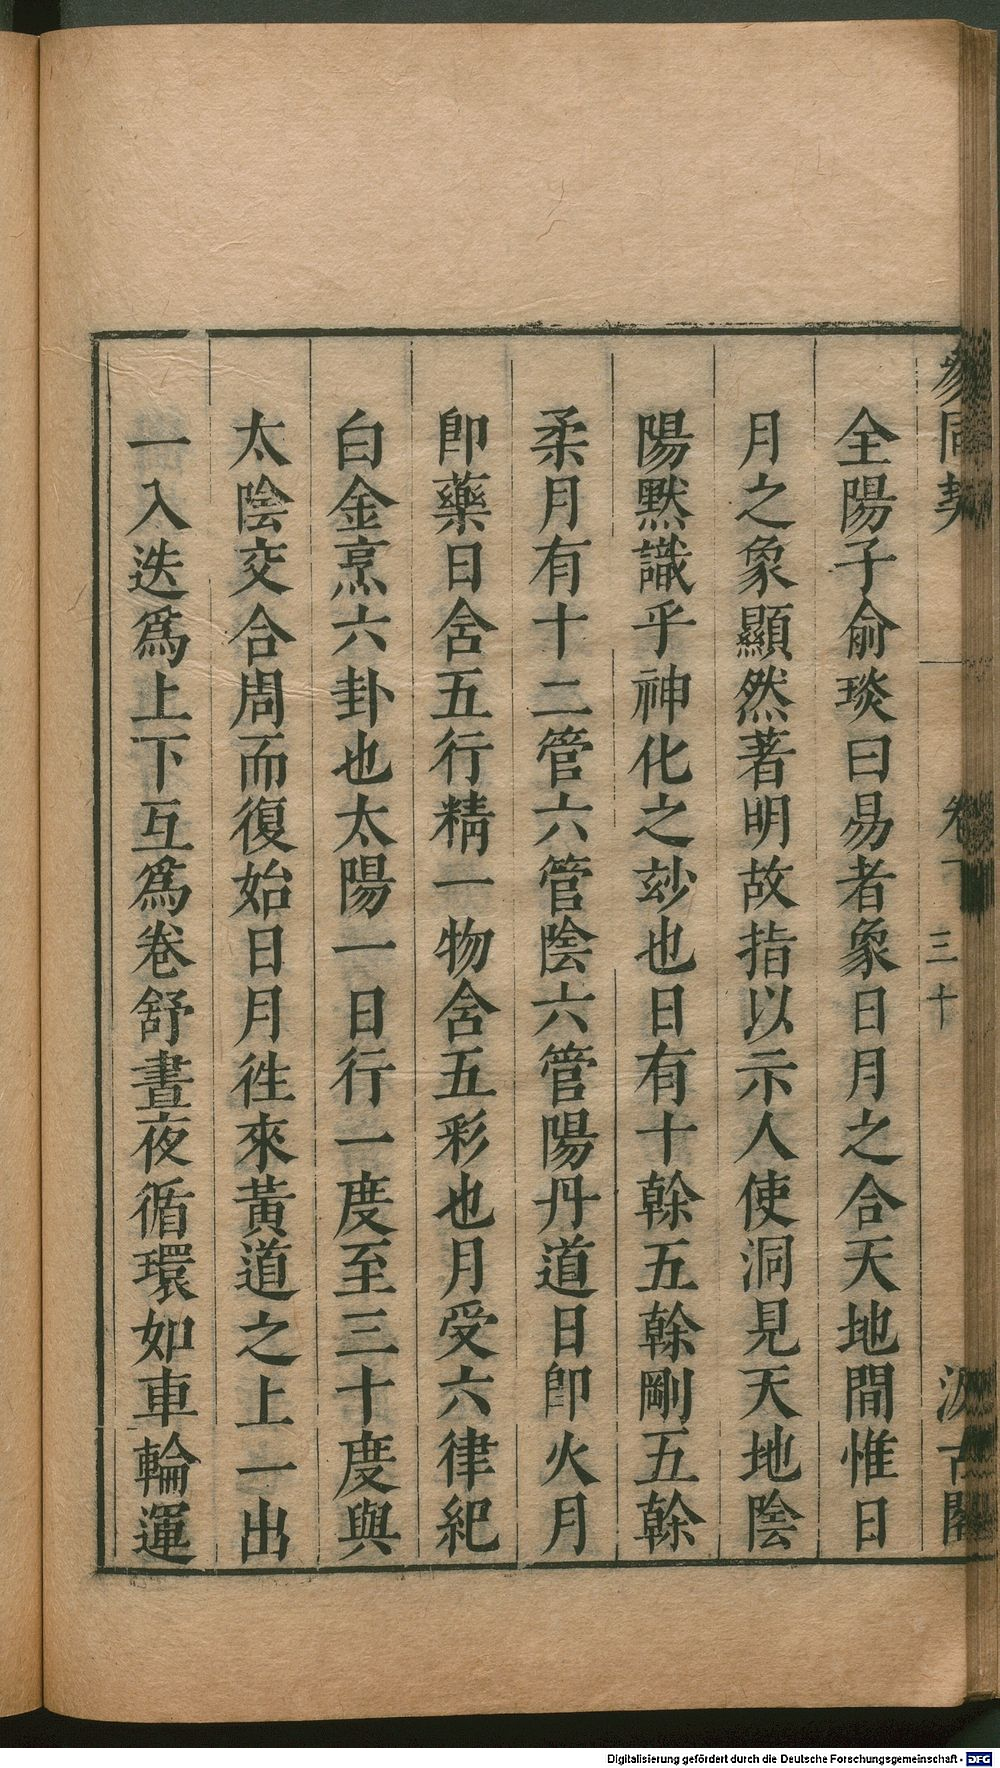 參同契 卷下 三十 汲古閣
全陽子俞琰曰易者象日月之合天地間惟日
月之象顯然著明故指以示人使洞見天地陰
陽默識乎神化之玅也日有十榦五榦剛五榦
柔月有十二管六管陰六管陽丹道日卽火月
卽藥日舍五行精一物舍五彩也月受六律紀
白金烹六卦也太陽一日行一度至三十度與
太陰交合周而復始日月徃來黃道之上一出
一入迭爲上下互爲卷舒晝夜循環如車輪運
Digitalisierung gefördert durch die Deutsche Forschungsgemeinschaft - DFG